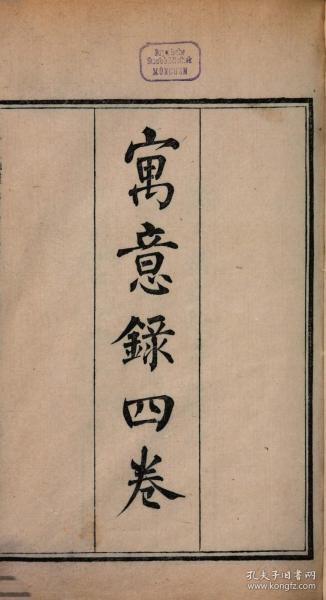 Bayerische
Staatsbibliothek
MÜNCHEN
寓意錄四卷
孔夫子旧书网
www.kongfz.com